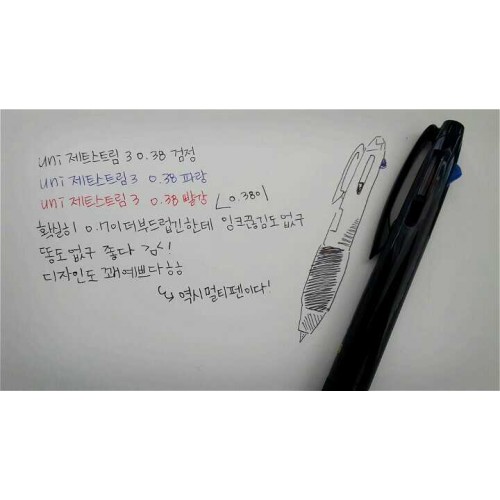 uni 제트스트림 3 0.38 검정
uni 제트스트림 3 0.38 파랑
uni 제트스트림 3 0.38 빨강
0.38이
확실히 0.7이 더 부드럽긴한데 잉크끊김도 없구
똥도 없구 좋다 굿!
디자인도 꽤 예쁘다 ㅎㅎ
역시 멀티펜이다!